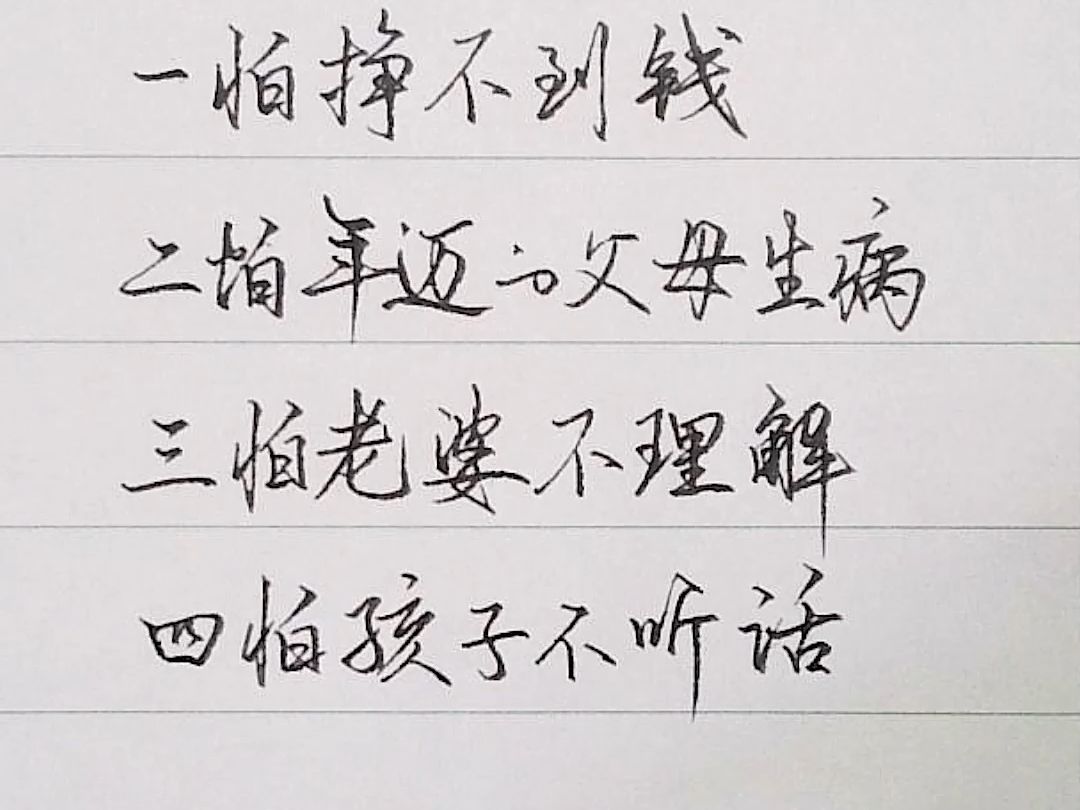 一怕挣不到钱
二怕年迈的父母生病
三怕老婆不理解
四怕孩子不听话